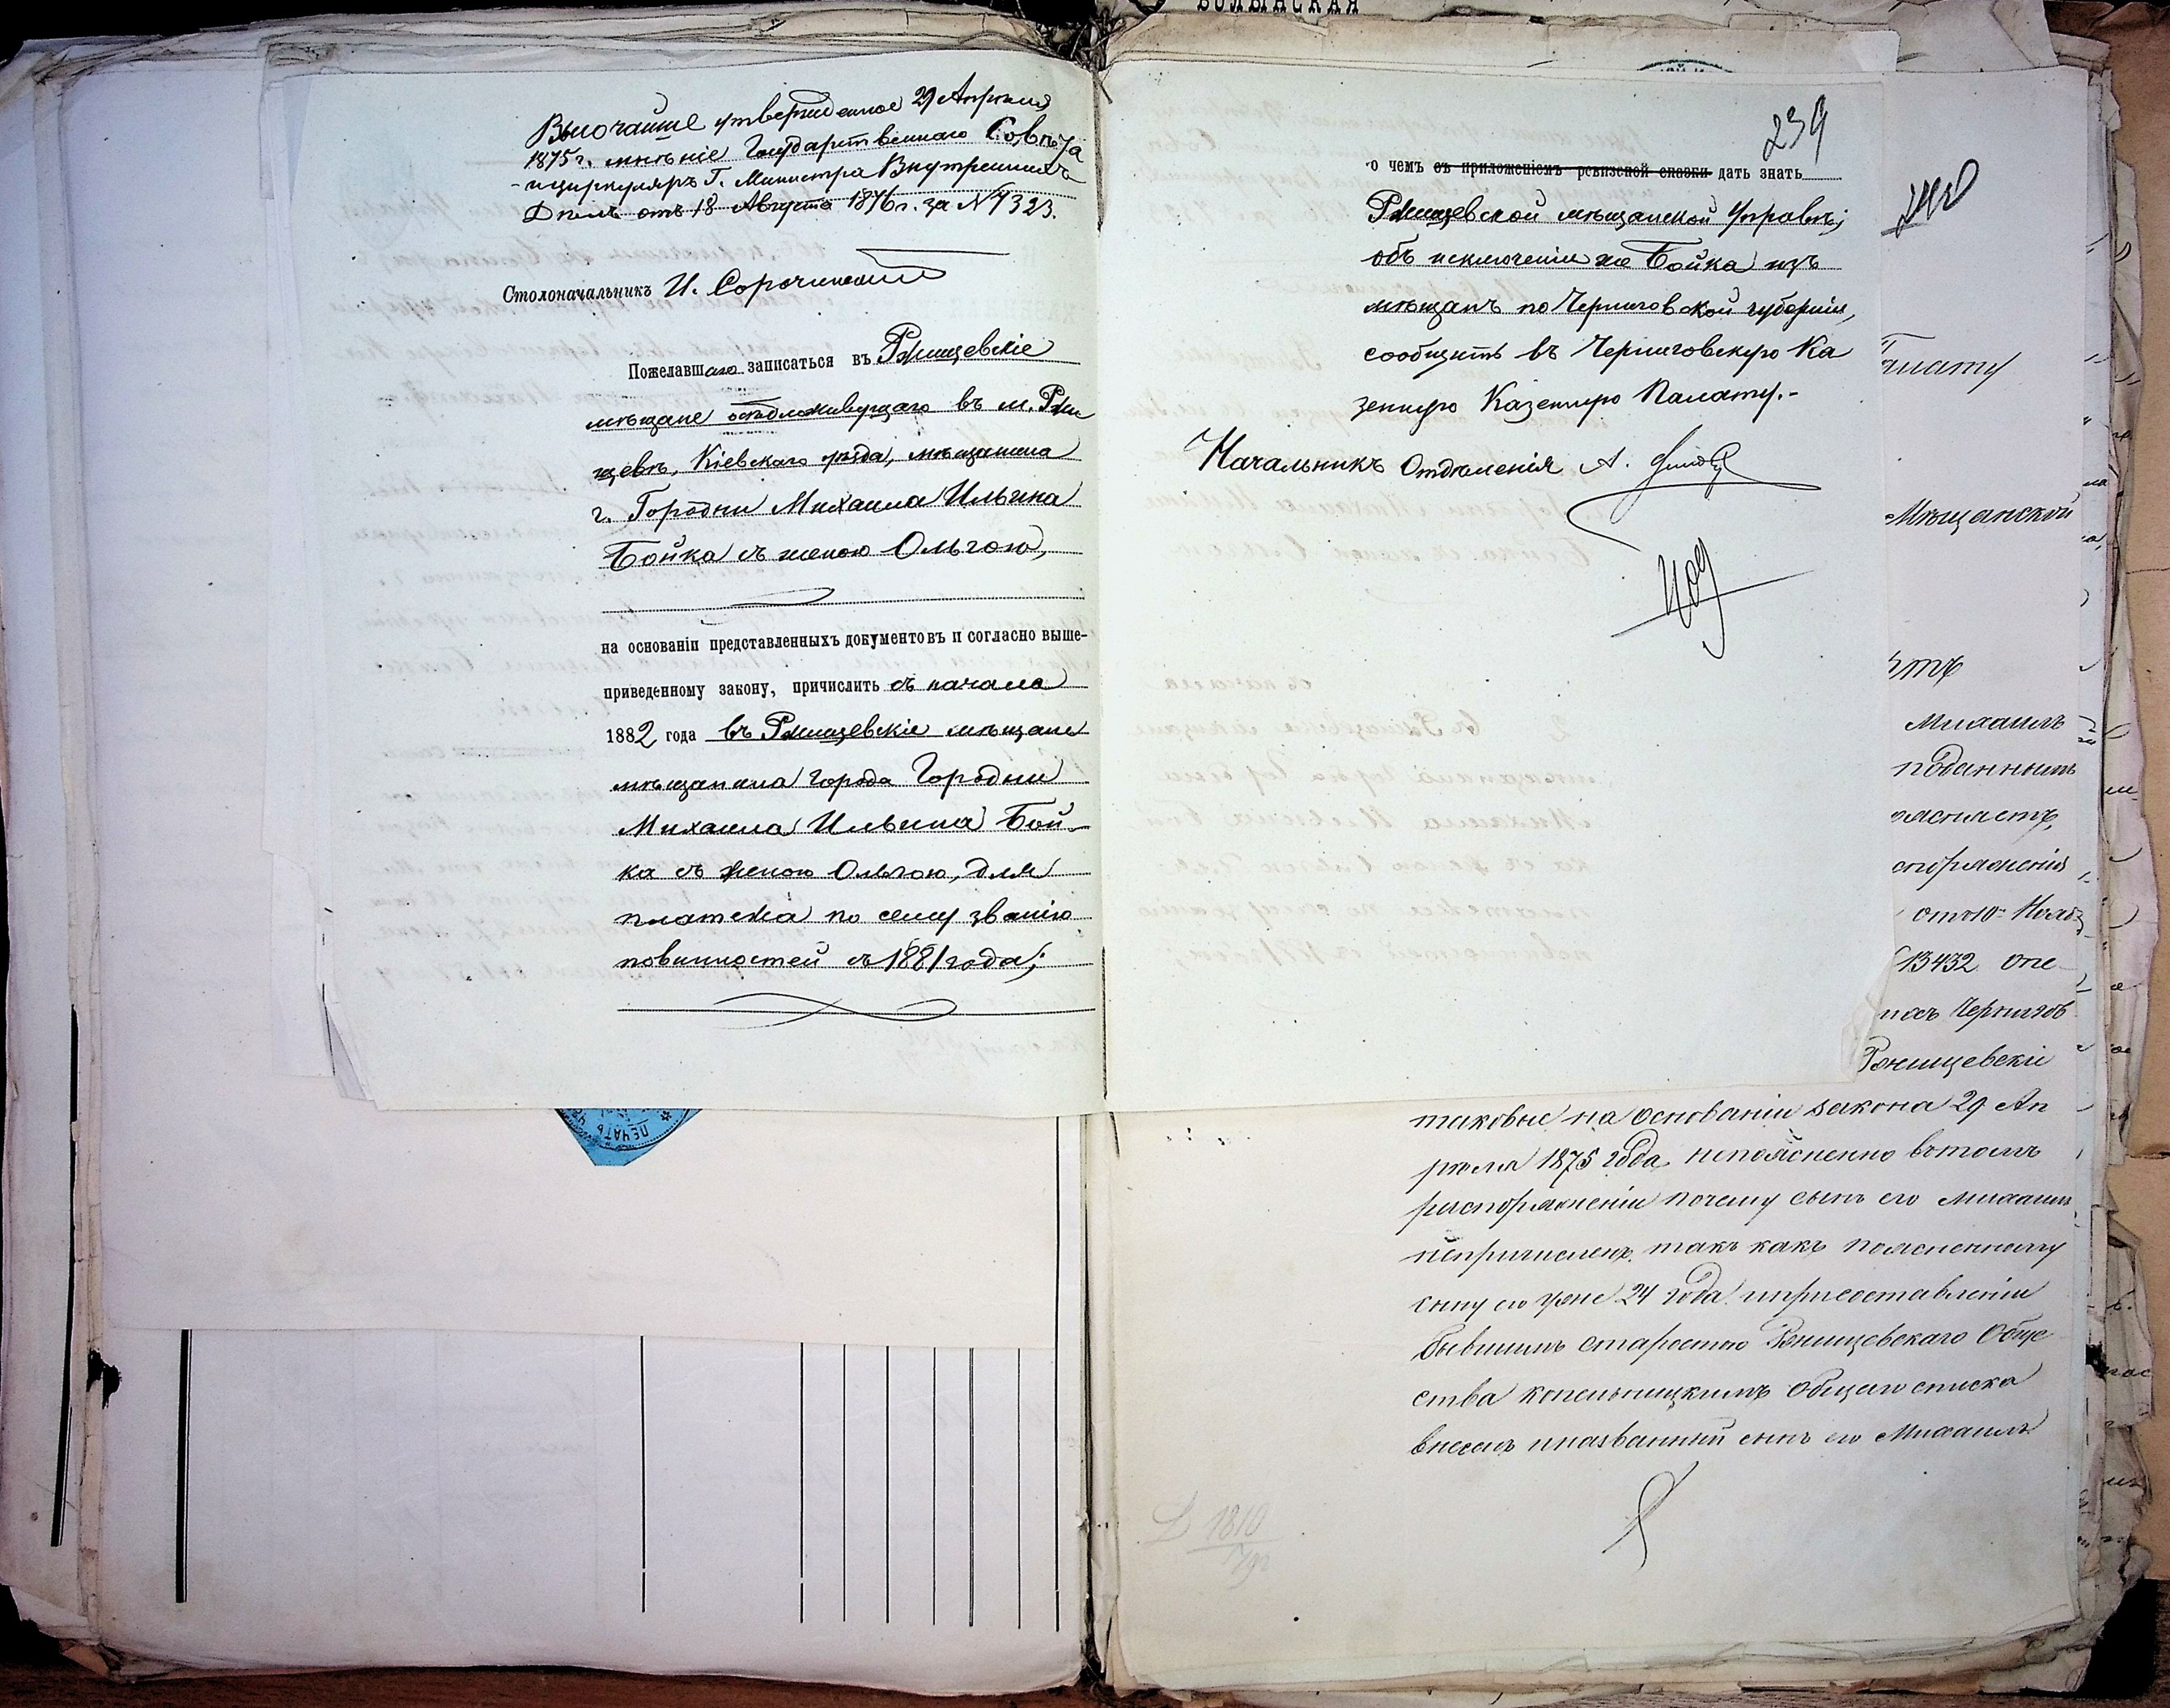 ВОЛЫНСКАЯ
Высочайше утвержденное 29 Апрѣля
1875 г. мнѣніе Государственнаго Совѣта
и циркуляръ Г. Министра Внутреннихъ
Дѣлъ отъ 18 Августа 1876 г. за № 7323.
Столоначальникъ И. Сорочинскій
Пожелавшаго записаться въ Ржищевскіе
мѣщане осѣдложивущаго въ м. Ржи
щевѣ, Кіевскаго уѣзда, мѣщанина
г. Городни Михаила Ильина
Бойка съ женою Ольгою,
на основаніи представленныхъ документовъ и согласно выше-
приведенному закону, причислить съ начала
1882 года въ Ржищевскіе мѣщане
мѣщанина города Городни
Михаила Ильина Бой-
ка съ женою Ольгою, для
платежа по сему званію
повинностей съ 1881 года;
ПЕЧАТЬ
239
о чемъ съ приложеніемъ ревизской сказки дать знать
Ржищевской мѣщанской Управѣ;
объ исключеніи же Бойка изъ
мѣщанъ по Черниговской губерніи,
сообщить въ Черниговскую Ка
зенную Казенную Палату.-
Начальникъ Отдѣленія А.
240
Палату
Мѣщанской
Михаилъ
поданнымъ
отъ 10 Нояб
13432 опе
Чернигов
Ржищевскіе
таковые на основаніи закона 29 Ап
рѣля 1875 года, непояснено въ томъ
распоряженіи почему сынъ его Михаилъ
непричисленъ, такъ какъ поясненному
сыну его уже 24 года и при составленіи
бывшимъ старостою Ржищевскаго Обще
ства Копельницкимъ общаго списка
внесенъ и названный сынъ его Михаилъ
1810